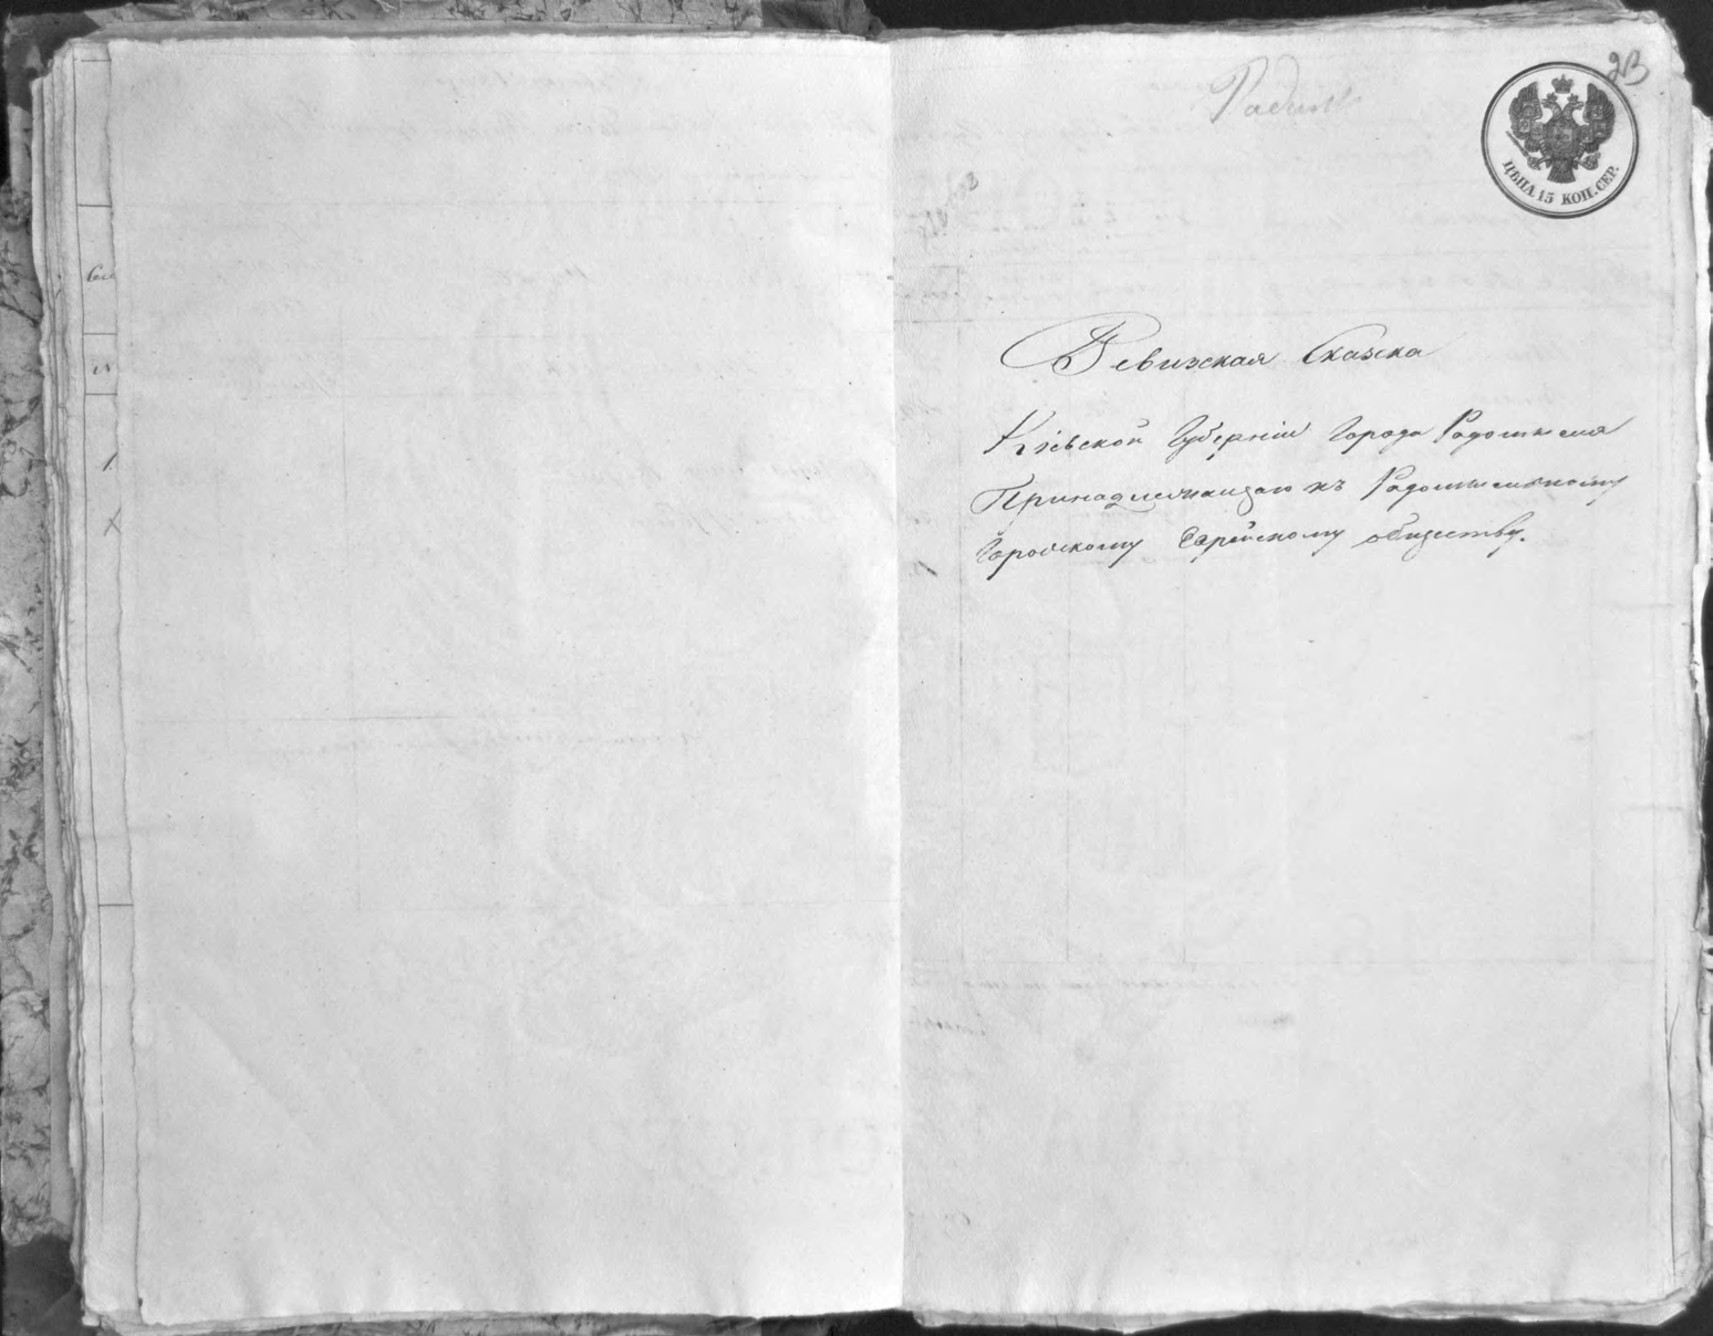 Радом
23
ЦѢНА 15 КОП. СЕР.
Ревизская Сказка
Кіевской Губерніи Города Радомысля
Принадлежащаго къ Радомысльскому
Городскому Еврейскому обществу.